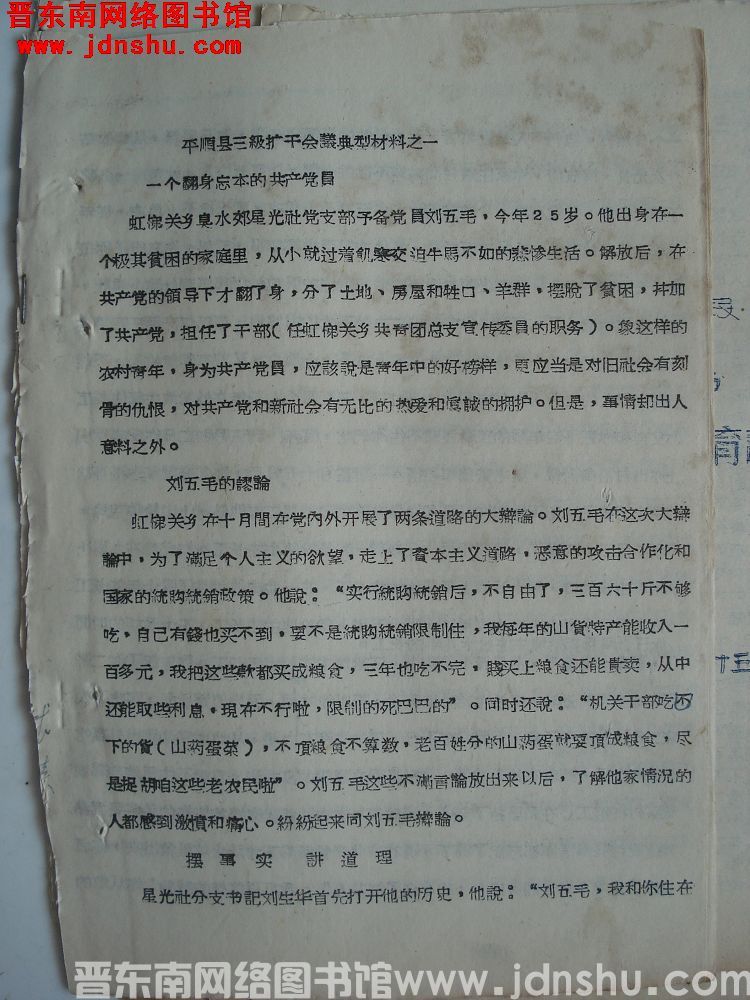 晋东南网络图书馆
www.jdnshu.com
平順县三級扩干会議典型材料之一
一个翻身忘本的共产党員
虹梯关乡臭水郊星光社党支部予备党員刘五毛，今年25岁。他出身在一
个极其貧困的家庭里，从小就过着飢寒交迫牛馬不如的悲惨生活。解放后，在
共产党的領导下才翻了身，分了土地、房屋和牲口、羊群，摆脫了貧困，幷加
了共产党，担任了干部（任虹梯关乡共青团总支宣传委員的职务）。象这样的
农村青年，身为共产党員，应該說是青年中的好榜样，更应当是对旧社会有刻
骨的仇恨，对共产党和新社会有无比的热爱和眞誠的拥护。但是，事情却出人
意料之外。
刘五毛的謬論
虹梯关乡在十月間在党內外开展了两条道路的大辯論。刘五毛在这次大辯
論中，为了滿足个人主义的欲望，走上了資本主义道路，恶意的攻击合作化和
国家的統购統銷政策。他說：“实行統购統銷后，不自由了，三百六十斤不够
吃，自己有錢也买不到，要不是統购統銷限制住，我每年的山貨特产能收入一
百多元，我把这些款都买成粮食，三年也吃不完，賤买上粮食还能貴卖，从中
还能取些利息，現在不行啦，限制的死巴巴的”。同时还說：“机关干部吃不
下的貨（山葯蛋菜），不頂粮食不算数，老百姓分的山葯蛋就要頂成粮食，尽
是捉胡咱这些老农民啦”。刘五毛这些不滿言論放出来以后，了解他家情况的
人都感到激憤和痛心。紛紛起来同刘五毛辯論。
摆事实 講道理
星光社分支书記刘生华首先打开他的历史，他說：“刘五毛，我和你住在
十五
晋东南网络图书馆www.jdnshu.com